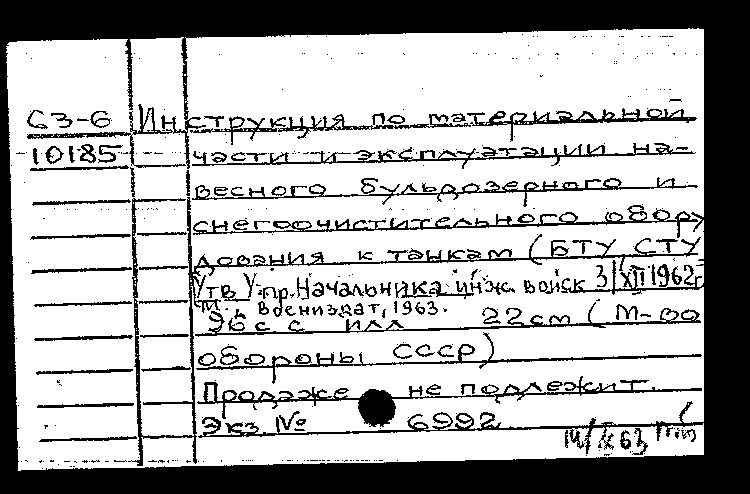 63-6 Инструкция по материальной
10185 части и эксплуатации на-
весного бульдозерного и
снегоочистительного обору
дования к танкам (БТУ, СТУ
Утв Упр. Начальника инж. войск 3/XII 1962г
М., Воениздат, 1963.
96с с илл 22см (М-во
обороны СССР)
Продаже не подлежит.
Экз № 6992
14/IX 63